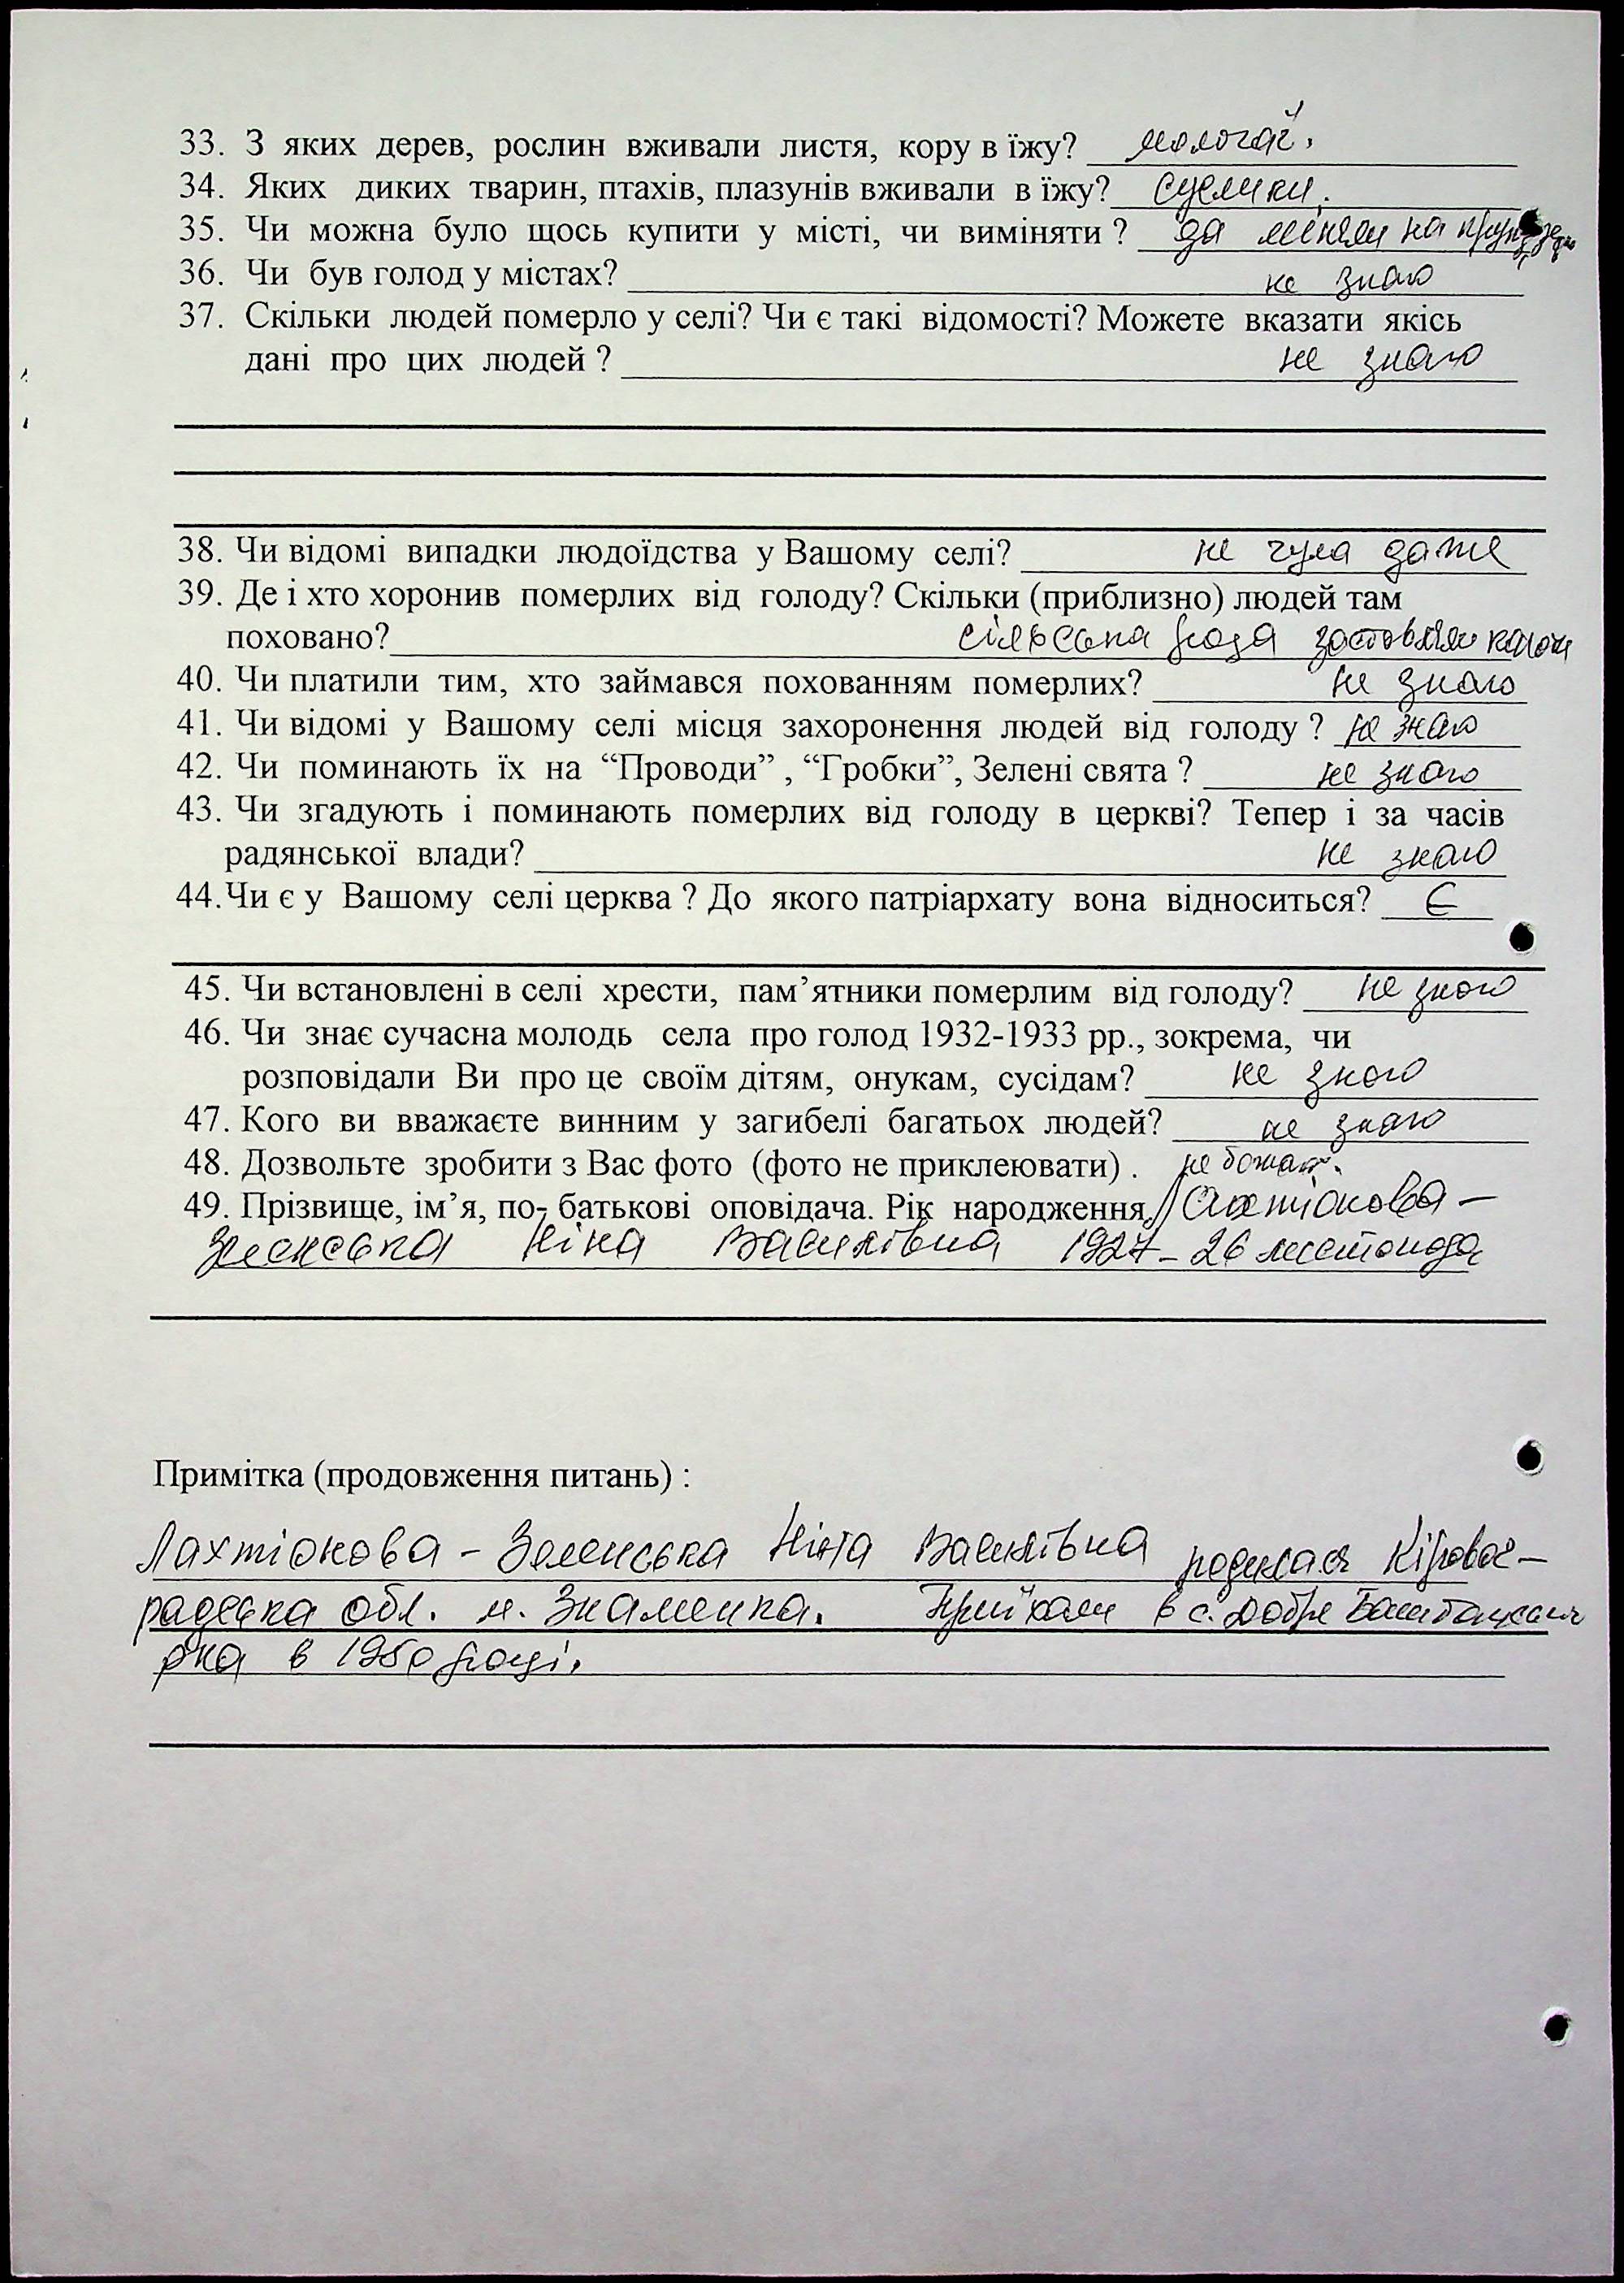 33. З яких дерев, рослин вживали листя, кору в їжу? молочай.
34. Яких диких тварин, птахів, плазунів вживали в їжу? суслики.
35. Чи можна було щось купити у місті, чи виміняти ? да міняли на
36. Чи був голод у містах? не знаю
37. Скільки людей померло у селі? Чи є такі відомості? Можете вказати якісь
дані про цих людей ? не знаю
38. Чи відомі випадки людоїдства у Вашому селі? не чула даже
39. Де і хто хоронив померлих від голоду? Скільки (приблизно) людей там
поховано? сільська рада заставляли копати
40. Чи платили тим, хто займався похованням померлих? не знаю
41. Чи відомі у Вашому селі місця захоронення людей від голоду ? не знаю
42. Чи поминають їх на “Проводи” , “Гробки”, Зелені свята ? не знаю
43. Чи згадують і поминають померлих від голоду в церкві? Тепер і за часів
радянської влади? не знаю
44.Чи є у Вашому селі церква ? До якого патріархату вона відноситься? Є
45. Чи встановлені в селі хрести, пам’ятники померлим від голоду? не знаю
46. Чи знає сучасна молодь села про голод 1932-1933 рр., зокрема, чи
розповідали Ви про це своїм дітям, онукам, сусідам? не знаю
47. Кого ви вважаєте винним у загибелі багатьох людей? не знаю
48. Дозвольте зробити з Вас фото (фото не приклеювати) . не бажає.
49. Прізвище, ім’я, по- батькові оповідача. Рік народження. Лахтіонова –
Зеленська Ніна Василівна 1927 – 26 листопада
Примітка (продовження питань) :
Лахтіонова – Зеленська Ніна Василівна родилася Кіровог–
радська обл. м. Знаменка. Приїхали в с. Добре
р-на в 1950 році.